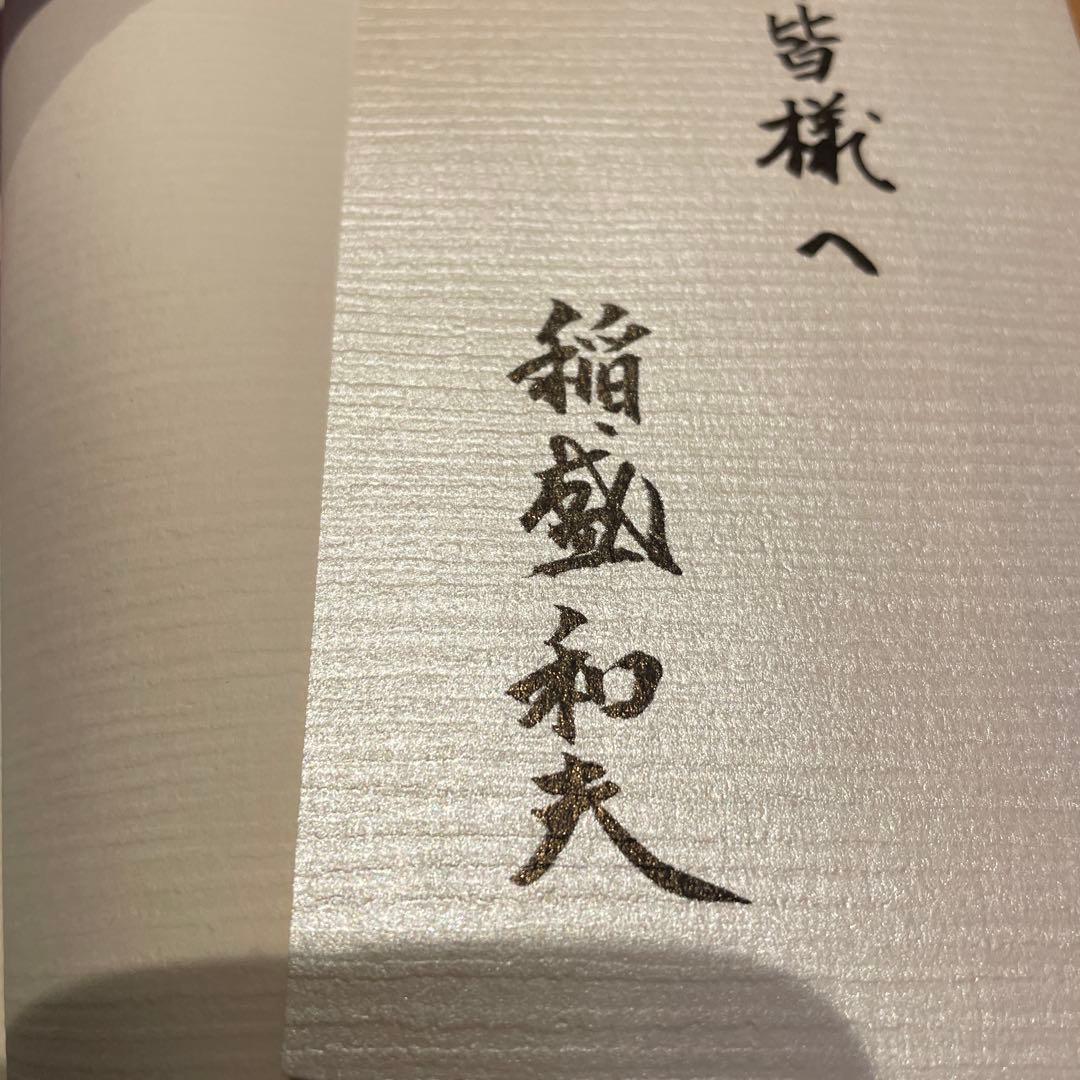 皆様へ
稲盛和夫